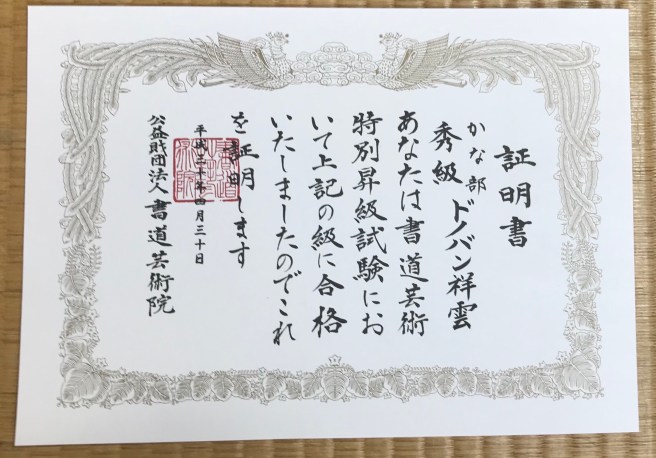 証明書
かな部
秀級 ドノバン祥雲
あなたは書道芸術
特別昇級試験にお
いて上記の級に合格
いたしましたのでこれ
を証明します
平成三十年四月三十日
公益財団法人 書道芸術院